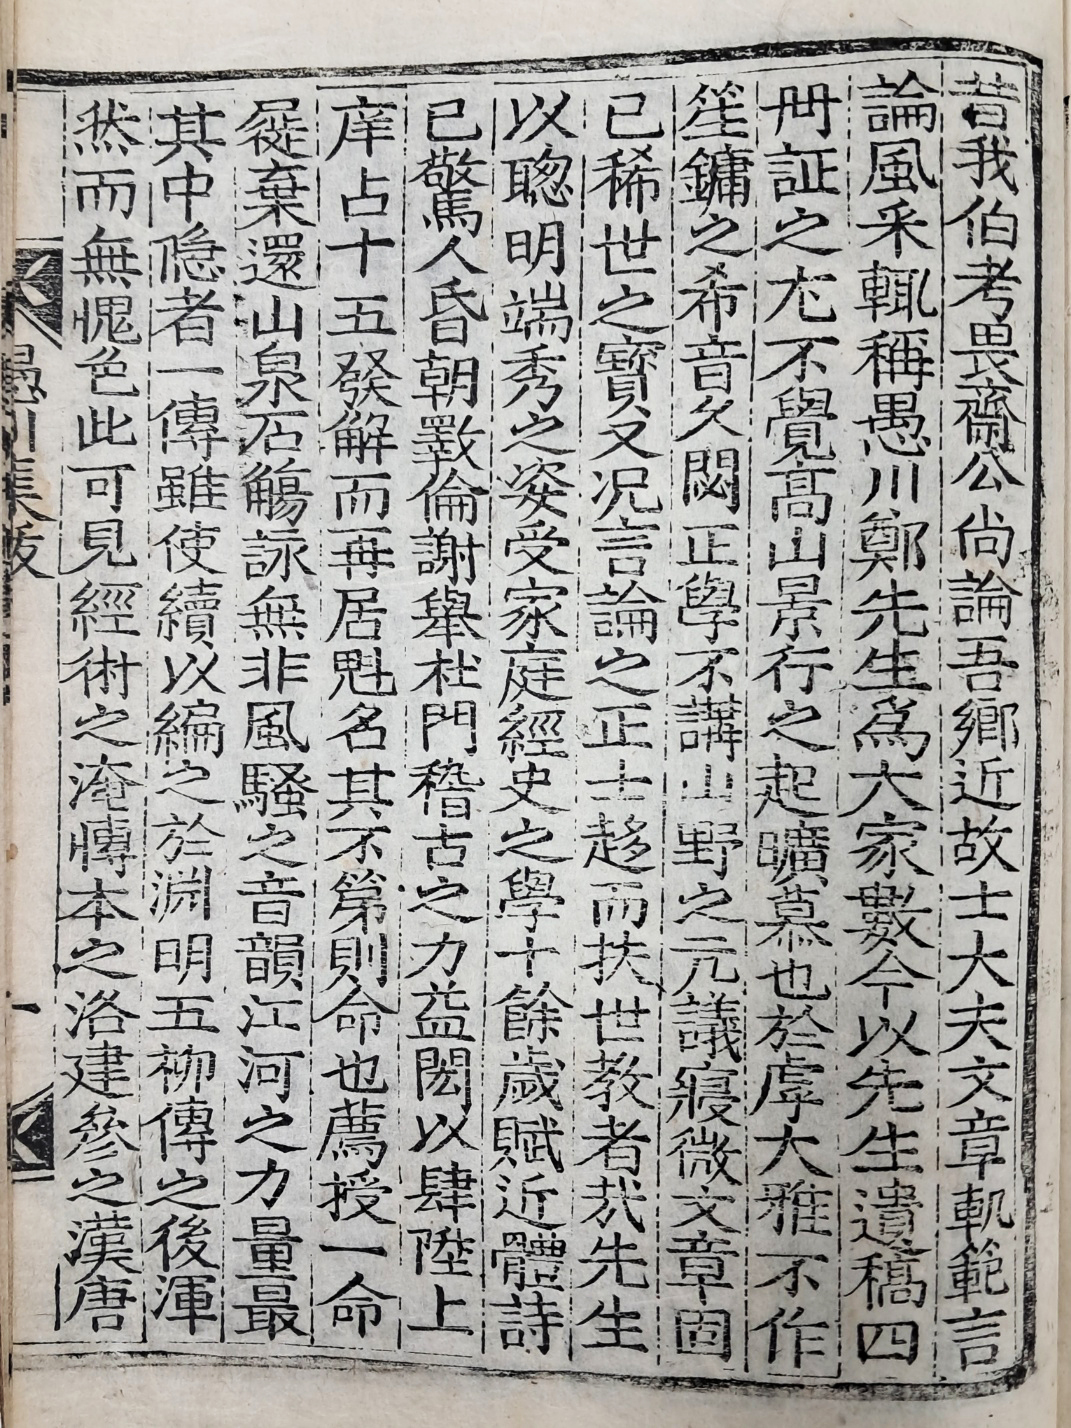 昔我伯考畏齋公尙論吾鄉近故士大夫文章軌範言
論風采輒稱愚川鄭先生爲大家數今以先生遺稿四
冊証之尤不覺高山景行之起曠慕也於虖大雅不作
笙鏞之希音久閟正學不講山野之元議寢微文章固
已稀世之寶又况言論之正士趍而扶世教者㢤先生
以聰明端秀之姿受家庭經史之學十餘歲賦近體詩
已驚人昏朝斁倫謝舉杜門稽古之力益閎以肆陞上
庠占十五發解而再居魁名其不第則命也薦授一命
屣棄還山泉石觴詠無非風騷之音韻江河之力量最
其中隐者一傳雖使續以編之於淵明五柳傳之後渾
然而無愧色此可見經術之淹慱本之洛建參之漢唐
愚川集跋
一